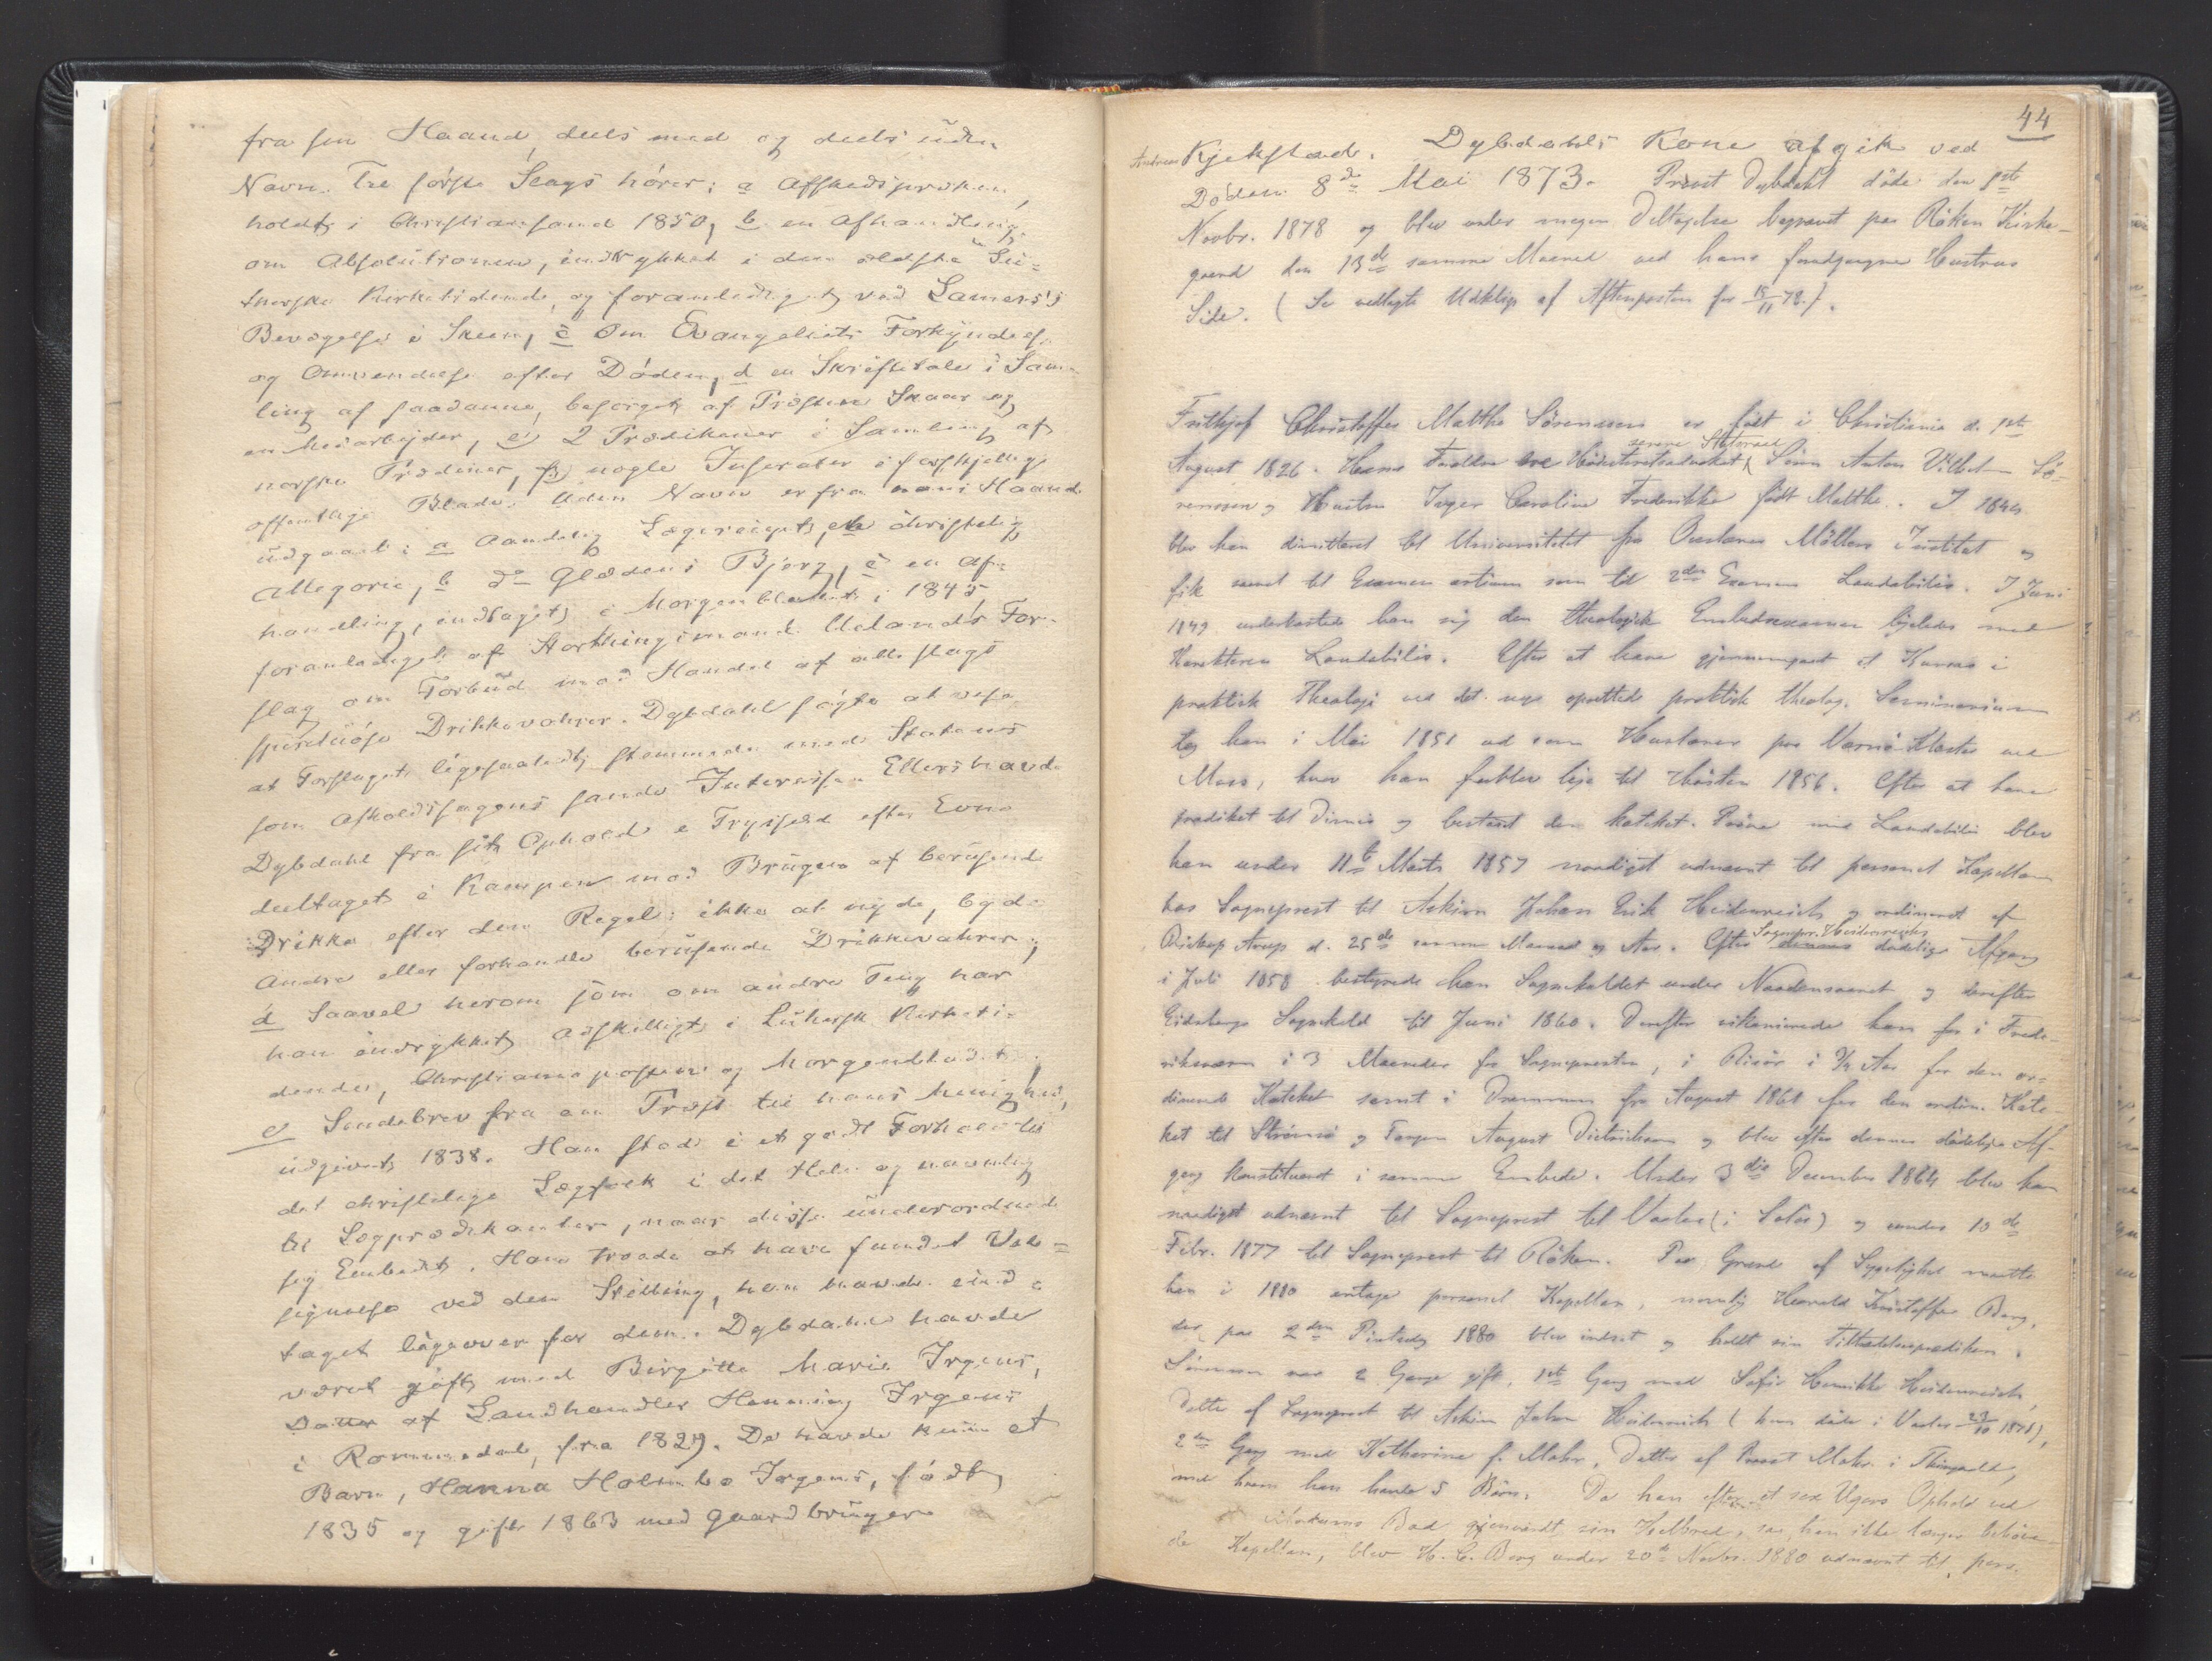 fra hans Haand, deels med og deels uden
Navn. Til første Slags hører: a Afskedsprædiken,
holdt i Christianssand 1850, b en Afhandling
om Absolutionen, indrykket i den ældste Lu-
therske Kirketidende, og foranlediget ved Lamers's
Bevægelse i Skien, c Om Evangeliets Forkyndelse
og Omvendelse efter Døden, d en Skriftetale i Sam-
ling af saadanne, besørget af Præsten Skaar og
en Medarbejder, e) 2 Prædikener i Samling af
norske Prædiener, f) nogle Inserater i forskjellige
offentlige Blade. Uden Navn er fra hans Haand
udgaaet: a Aandelig Lægerecept, en christelig
Allegorie, b do Glædens Bjerg, c en Af-
handling, indtaget i Morgenbladet i 1845,
foranlediget af Storthingsmand Uelands For-
slag om Forbud mod Handel af alle slags
spirituøse Drikkevahrer. Dybdahl søgte at vise,
at Forslaget ligesaalidt stemmede med Statens
som Afholdssagens sande Interesse. Ellers havde
Dybdahl fra sit Ophold i Trysild efter Evne
deeltaget i Kampen mod Brugen af berusende
Drikke efter den Regel: ikke at nyde, byde
Andre eller forhandle berusende Drikkevahrer;
d Saavel herom som om andre Ting har
han indrykket adskilligt i Luthersk Kirketi-
dende, Christianiaposten og Morgenbladet;
e Sendebrev fra en Præst til hans Menighed,
udgivet 1838. Han stod i et godt Forhold til
det christelige Lægfolk i det Hele og navnlig
til Lægprædikanter, naar disse underordnede
sig Embedet. Han troede at have fundet Vel-
signelse ved den Stilling, han havde ind-
taget ligeover for dem. Dybdahl havde
været gift med Birgitte Marie Irgens,
Datter af Landhandler Henning Irgens
i Romsdal, fra 1829. De havde kun et
Barn, Hanna Holmbo Irgens, født
1835 og gift 1863 med Gaardbruger
44
Andreas Kjekstad. Dybdahls Kone afgik ved
Døden 8de Mai 1873. Provst Dybdahl døde den 8de
Novbr. 1878 og blev under megen Deltagelse begravet paa Röken Kirke-
gaard den 13de samme Maaned ved hans forudgangne Hustrus
Side. (Se vedlagte Udklip af Aftenposten for 15/11 78.).
Frithjof Christoffer Malthe Sörenssen er födt i Christiania d. 1ste
August 1826. Hans Forældre ere Höiesteretsadvokat senere Sören Anton Vilhelm Sö-
renssen og Hustru Inger Caroline Frederikke födt Malthe. I 1844
blev han dimitteret til Universitetet fra Overlærer Möllers Institut og
fik saavel til Examen artium som til 2den Examen Laudabilis. I Juni
1849 underkastede han sig den theologiske Embedsexamen ligeledes med
Karakteren Laudabilis. Efter at have gjennemgaaet et Kursus i
praktisk Theologi ved det nys oprettede praktisk theolog. Seminarium
tog han i Mai 1851 ud som Huslærer paa Værne Kloster ved
Moss, hvor han forblev lige til Hösten 1856. Efter at have
prædiket til Dimis og bestaaet den kateket. Pröve med Laudabilis blev
han under 11te Marts 1857 naadigst udnævnt til personel Kapellan
hos Sogneprest til Askim Johan Erik Heidenreich og ordineret af
Biskop Arup d. 25de samme Maaned og Aar. Efter Sognepr. Heidenreichs dødelige Afgang
i Juli 1858 bestyrede han Sognekaldet under Naadensaaret og derefter
Eidsbergs Sognekald til Juni 1860. Derefter vikarierede han for i Frede-
riksværn i 3 Maaneder for Sognepresten, i Risör i 3/4 Aar for den or-
dinerede Kateket samt i Drammen fra August 1861 for den ordin. Kate-
ket til Strömsö og Tangen August Dietrichson og blev efter dennes dödelige Af-
gang konstitueret i samme Embede. Under 3die December 1864 blev han
naadigst udnævnt til Sogneprest til Vaaler (i Solör) og under 10de
Febr. 1877 til Sogneprest til Röken. Paa Grund af Sygelighed maatte
han i 1880 antage personel Kapellan, nemlig Harald Kristoffer Borg,
der paa 2den Pintsedag 1880 blev indsat og holdt sin Tiltrædelsesprædiken.
Sörenssen var 2 Gange gift, 1ste Gang med Sofie Henrikke Heidenreich,
Datter af Sogneprest til Askim Johan Heidenreich (hun döde i Vaaler 23/10 1871),
2den Gang med Katharine f. Mohr, Datter af Provst Mohr i Thingvold,
med hvem han havde 5 Börn. Da han efter et sex Ugers Ophold ved
Bad gjenvandt sin Helbred, saa han ikke længer behöve-
de Kapellan, blev H. C. Borg under 20de Novbr. 1880 udnævnt til pers.